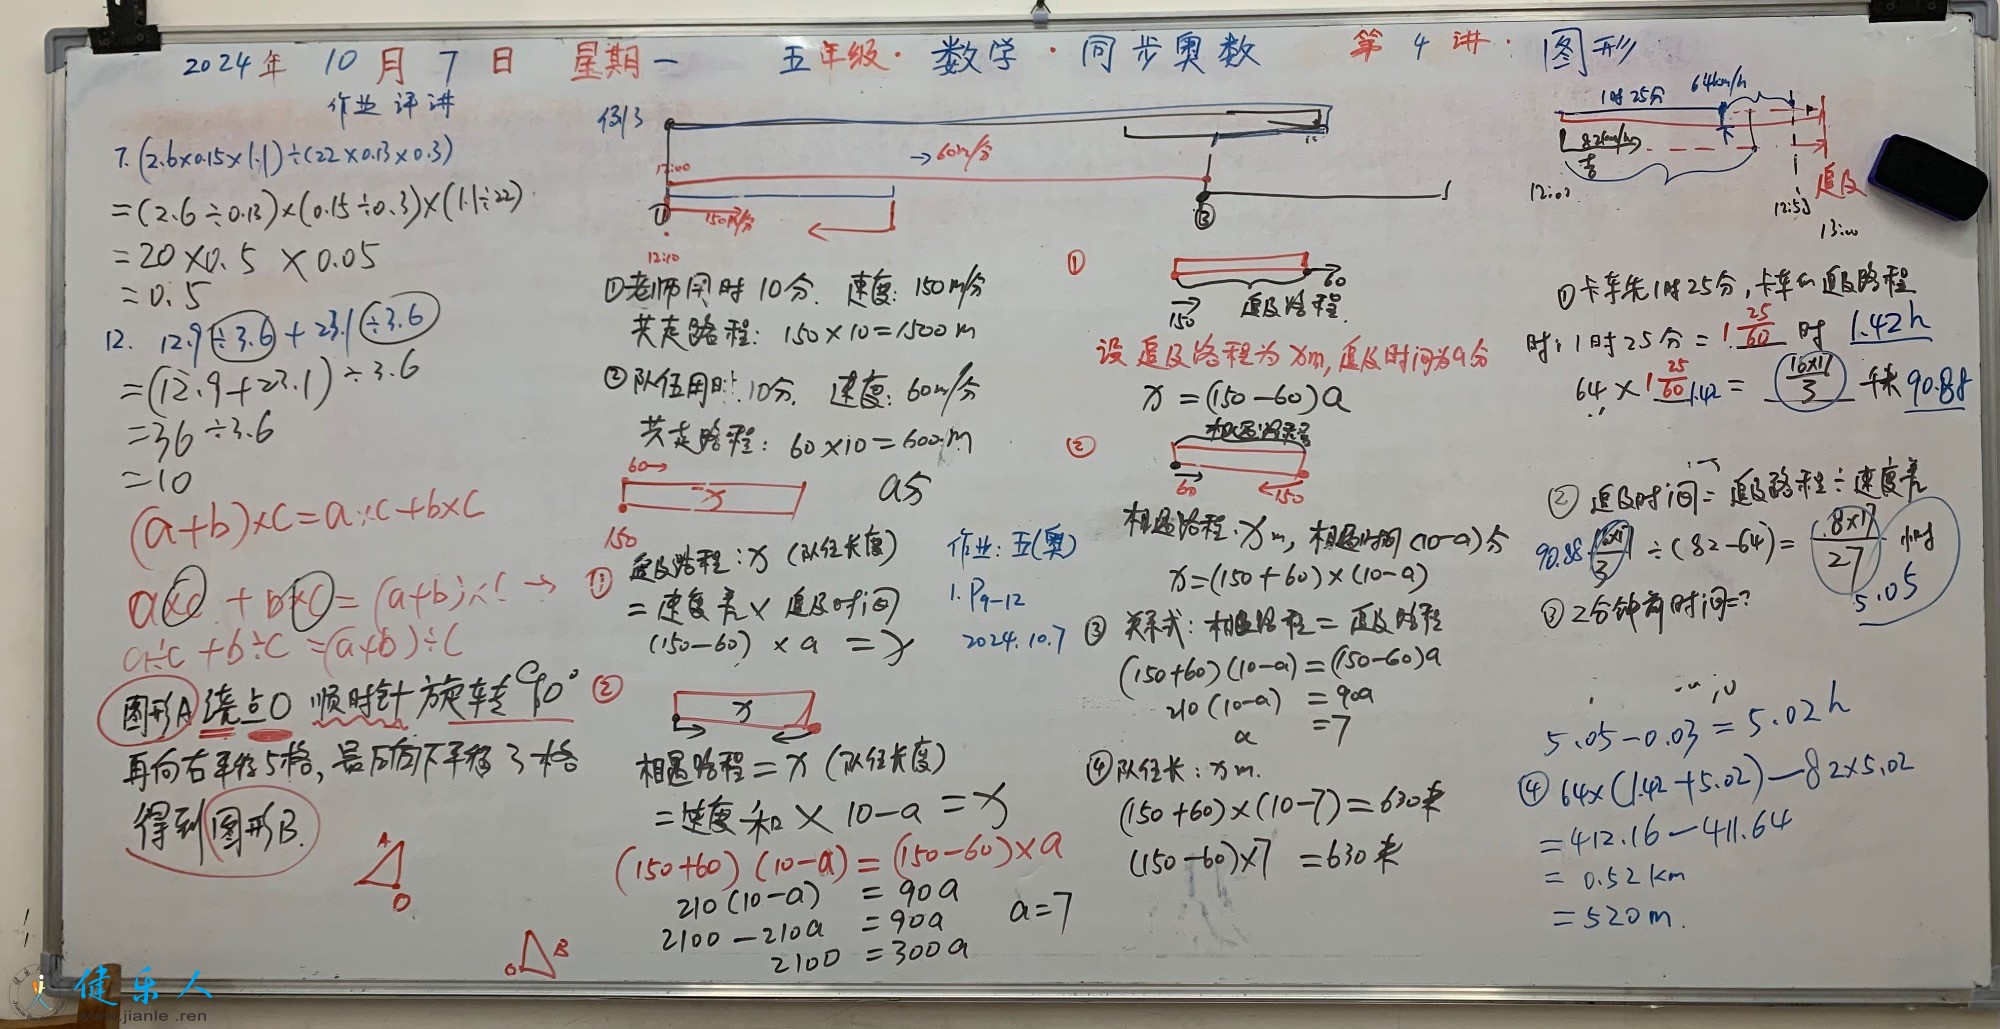 2024年 10月7日 星期一 五年级·数学·同步奥数 第4讲: 图形
作业评讲
7. (2.6×0.15×1.1)÷(22×0.13×0.3)
=(2.6÷0.13)×(0.15÷0.3)×(1.1÷22)
=20×0.5×0.05
=0.5
12. 12.9÷3.6+23.1÷3.6
=(12.9+23.1)÷3.6
=36÷3.6
=10
(a+b)×c=a×c+b×c
a×c+b×c=(a+b)×c→
a÷c+b÷c=(a+b)÷c
图形A绕点O顺时针旋转90°
再向右平移5格,最后向下平移3格
得到图形B.
A
O
O B
例3
12:00
→60m/分
① 150m/分
③
12:10
①老师用时10分. 速度: 150m/分
共走路程: 150×10=1500m
②队伍用时:10分. 速度: 60m/分
共走路程: 60×10=600m
60→
x a分
150
① 追及路程: x (队伍长度)
=速度差×追及时间
(150-60)×a=x
②
x
相遇路程=x (队伍长度)
=速度和×10-a=x
(150+60)(10-a)=(150-60)×a
210(10-a)=90a
2100-210a=90a
2100=300a
a=7
作业: 五(奥)
1. P9-12
2024.10.7
①
→60
150 追及路程.
设追及路程为xm,追及时间为a分
x=(150-60)a
② 相遇路程
60 150
相遇路程:xm, 相遇时间(10-a)分
x=(150+60)×(10-a)
③ 关系式: 相遇路程=追及路程
(150+60)(10-a)=(150-60)a
210(10-a)=90a
a=7
④队伍长: xm.
(150+60)×(10-7)=630米
(150-60)×7=630米
1时25分 64km/h
82km/h
追及
13:00
①卡车先1时25分,卡车的追及路程
时: 1时25分=1 25/60 时 1.42h
64×1 25/60 1.42= 16×17/3 千米 90.88
②追及时间=追及路程÷速度差
90.88 16×17/3÷(82-64)= 8×17/27 小时
5.05
③2分钟前时间=?
5.05-0.03=5.02h
④ 64×(1.42+5.02)-82×5.02
=412.16-411.64
=0.52km
=520m.
健乐人
www.jianle.ren